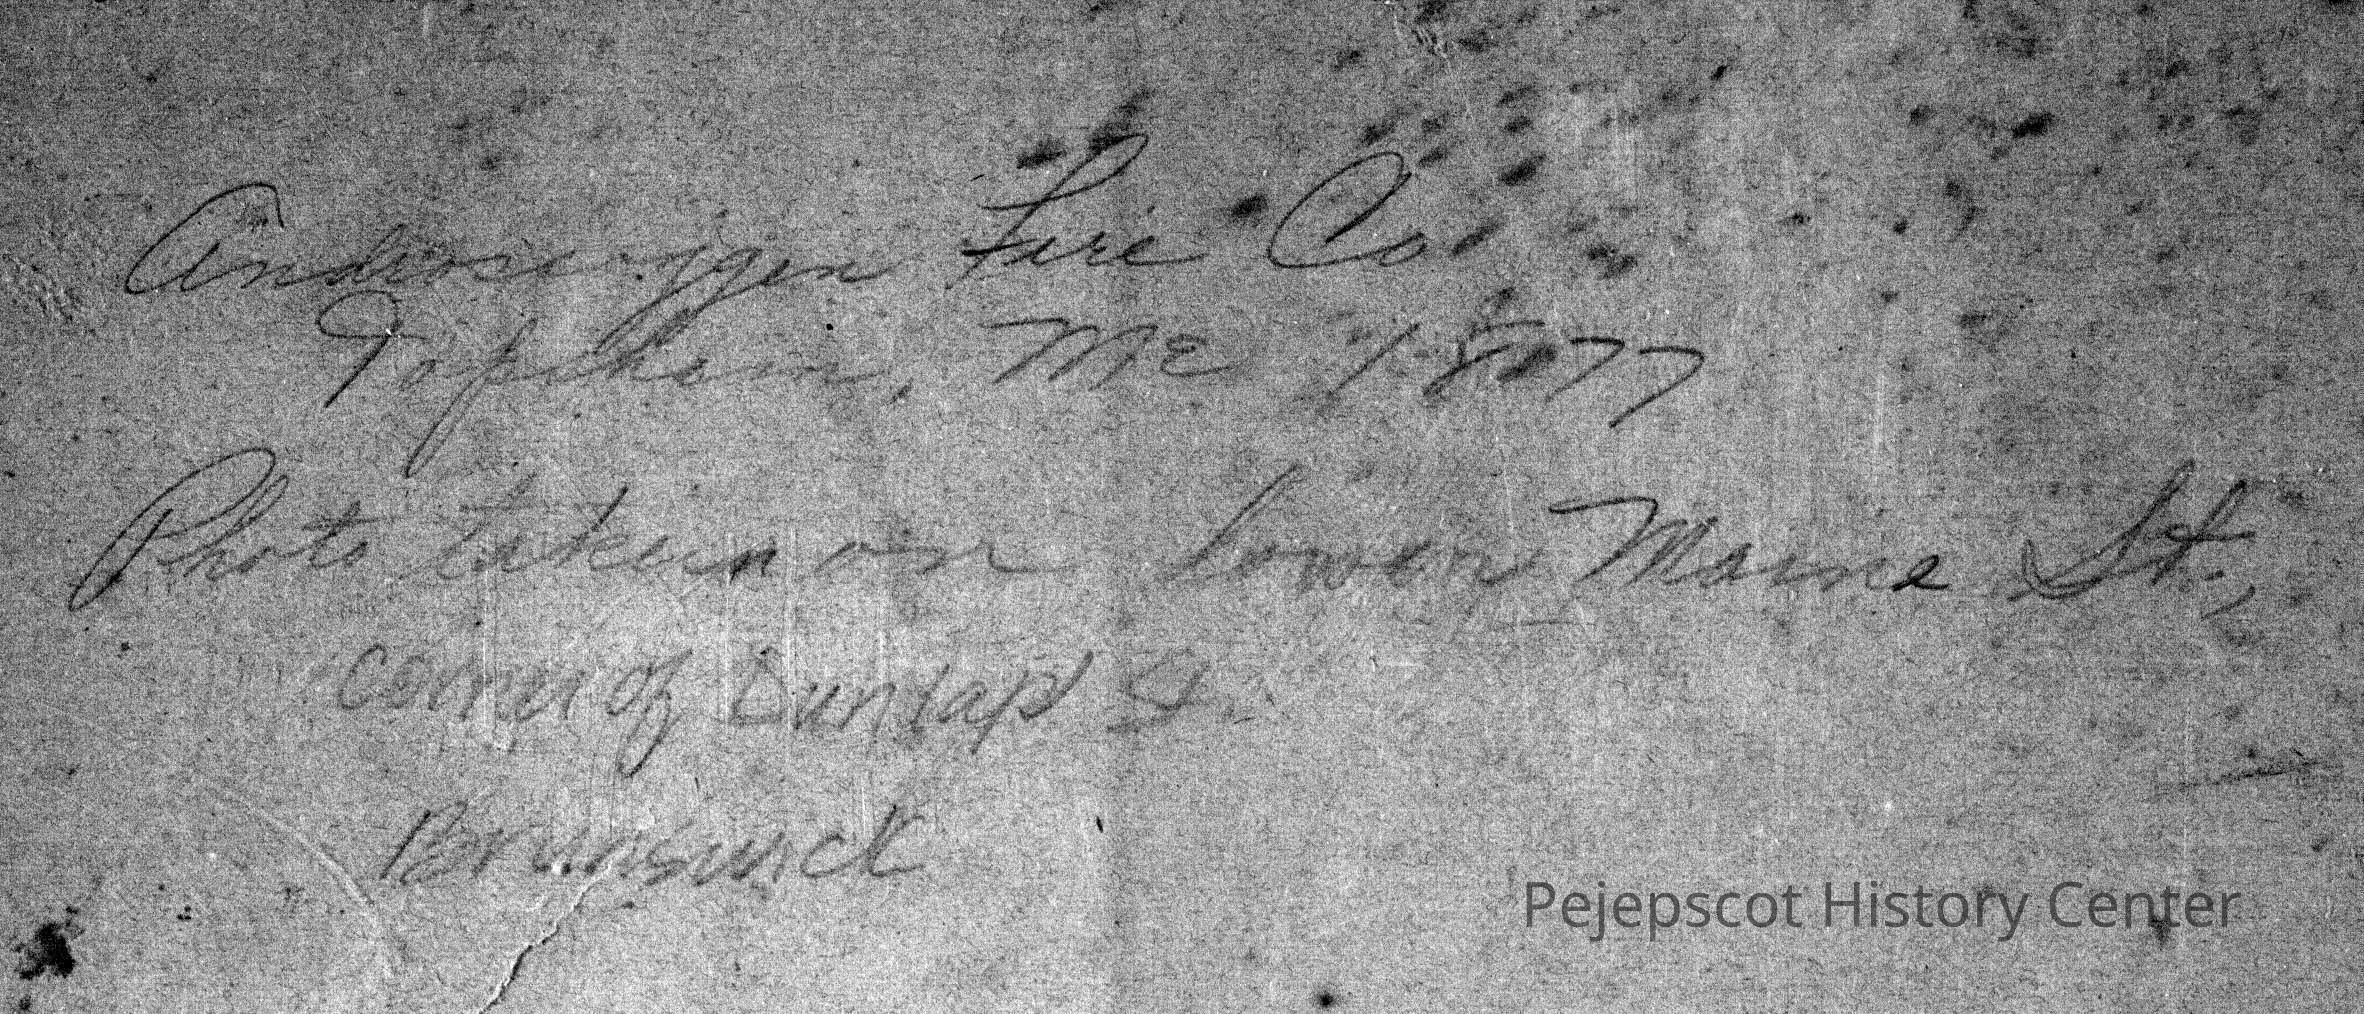 Androscoggin Fire Co
Topsham, ME 1877
Photo taken on Lower Maine St.,
Corner of Dunlap St.
Brunswick
Pejepscot History Center